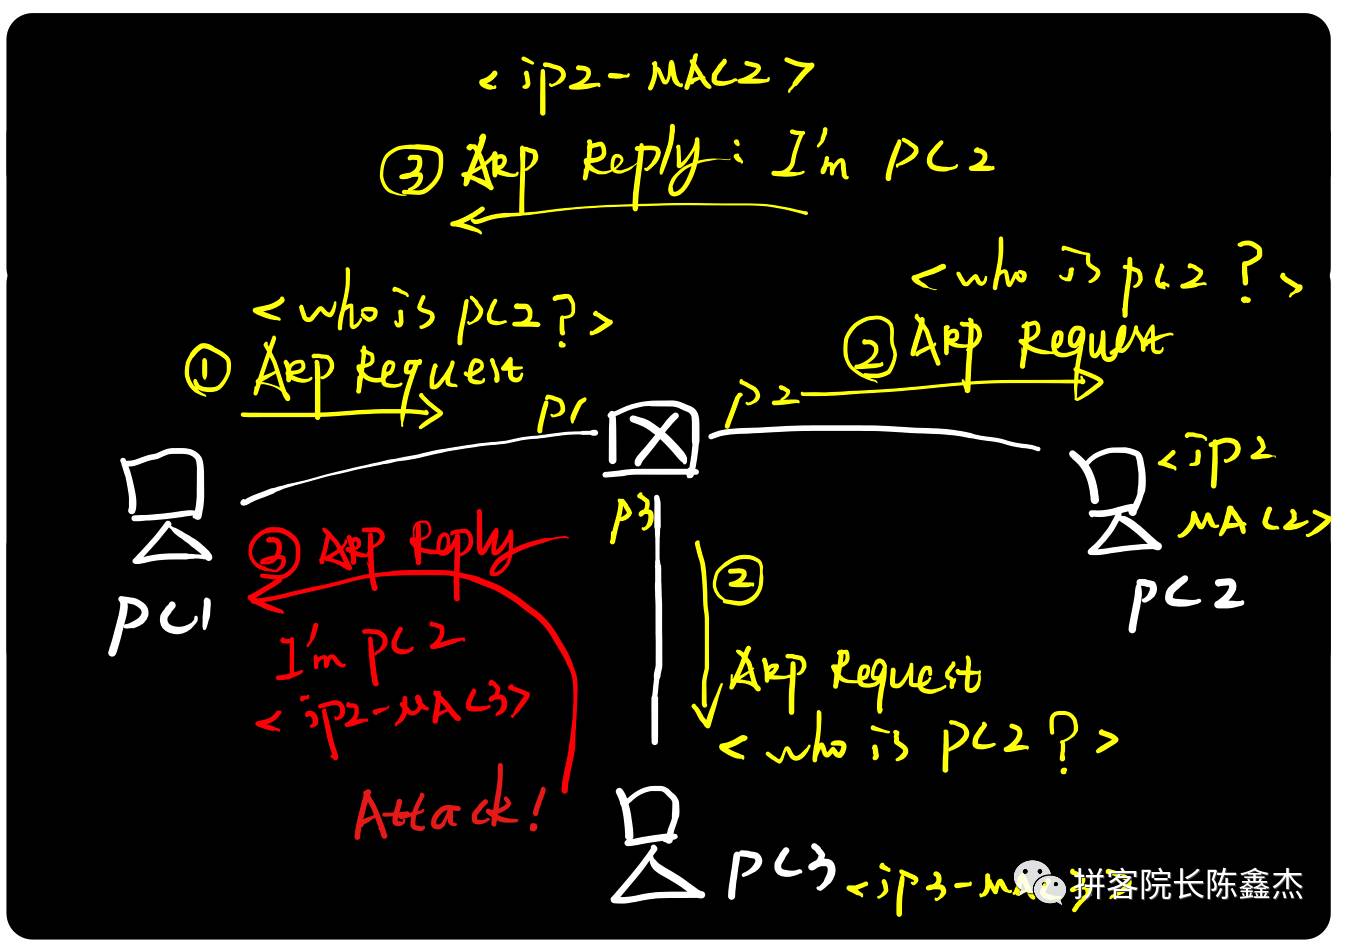 <ip2-MAC2>
③ ARP Reply: I'm PC2
<who is PC2?>
② ARP Request
<who is PC2?>
① ARP Request
P1
P2
<ip2
MAC2>
PC2
P3
PC1
③ ARP Reply
I'm PC2
<ip2-MAC3>
Attack!
②
ARP Request
<who is PC2?>
PC3
<ip3-
拼客院长陈鑫杰